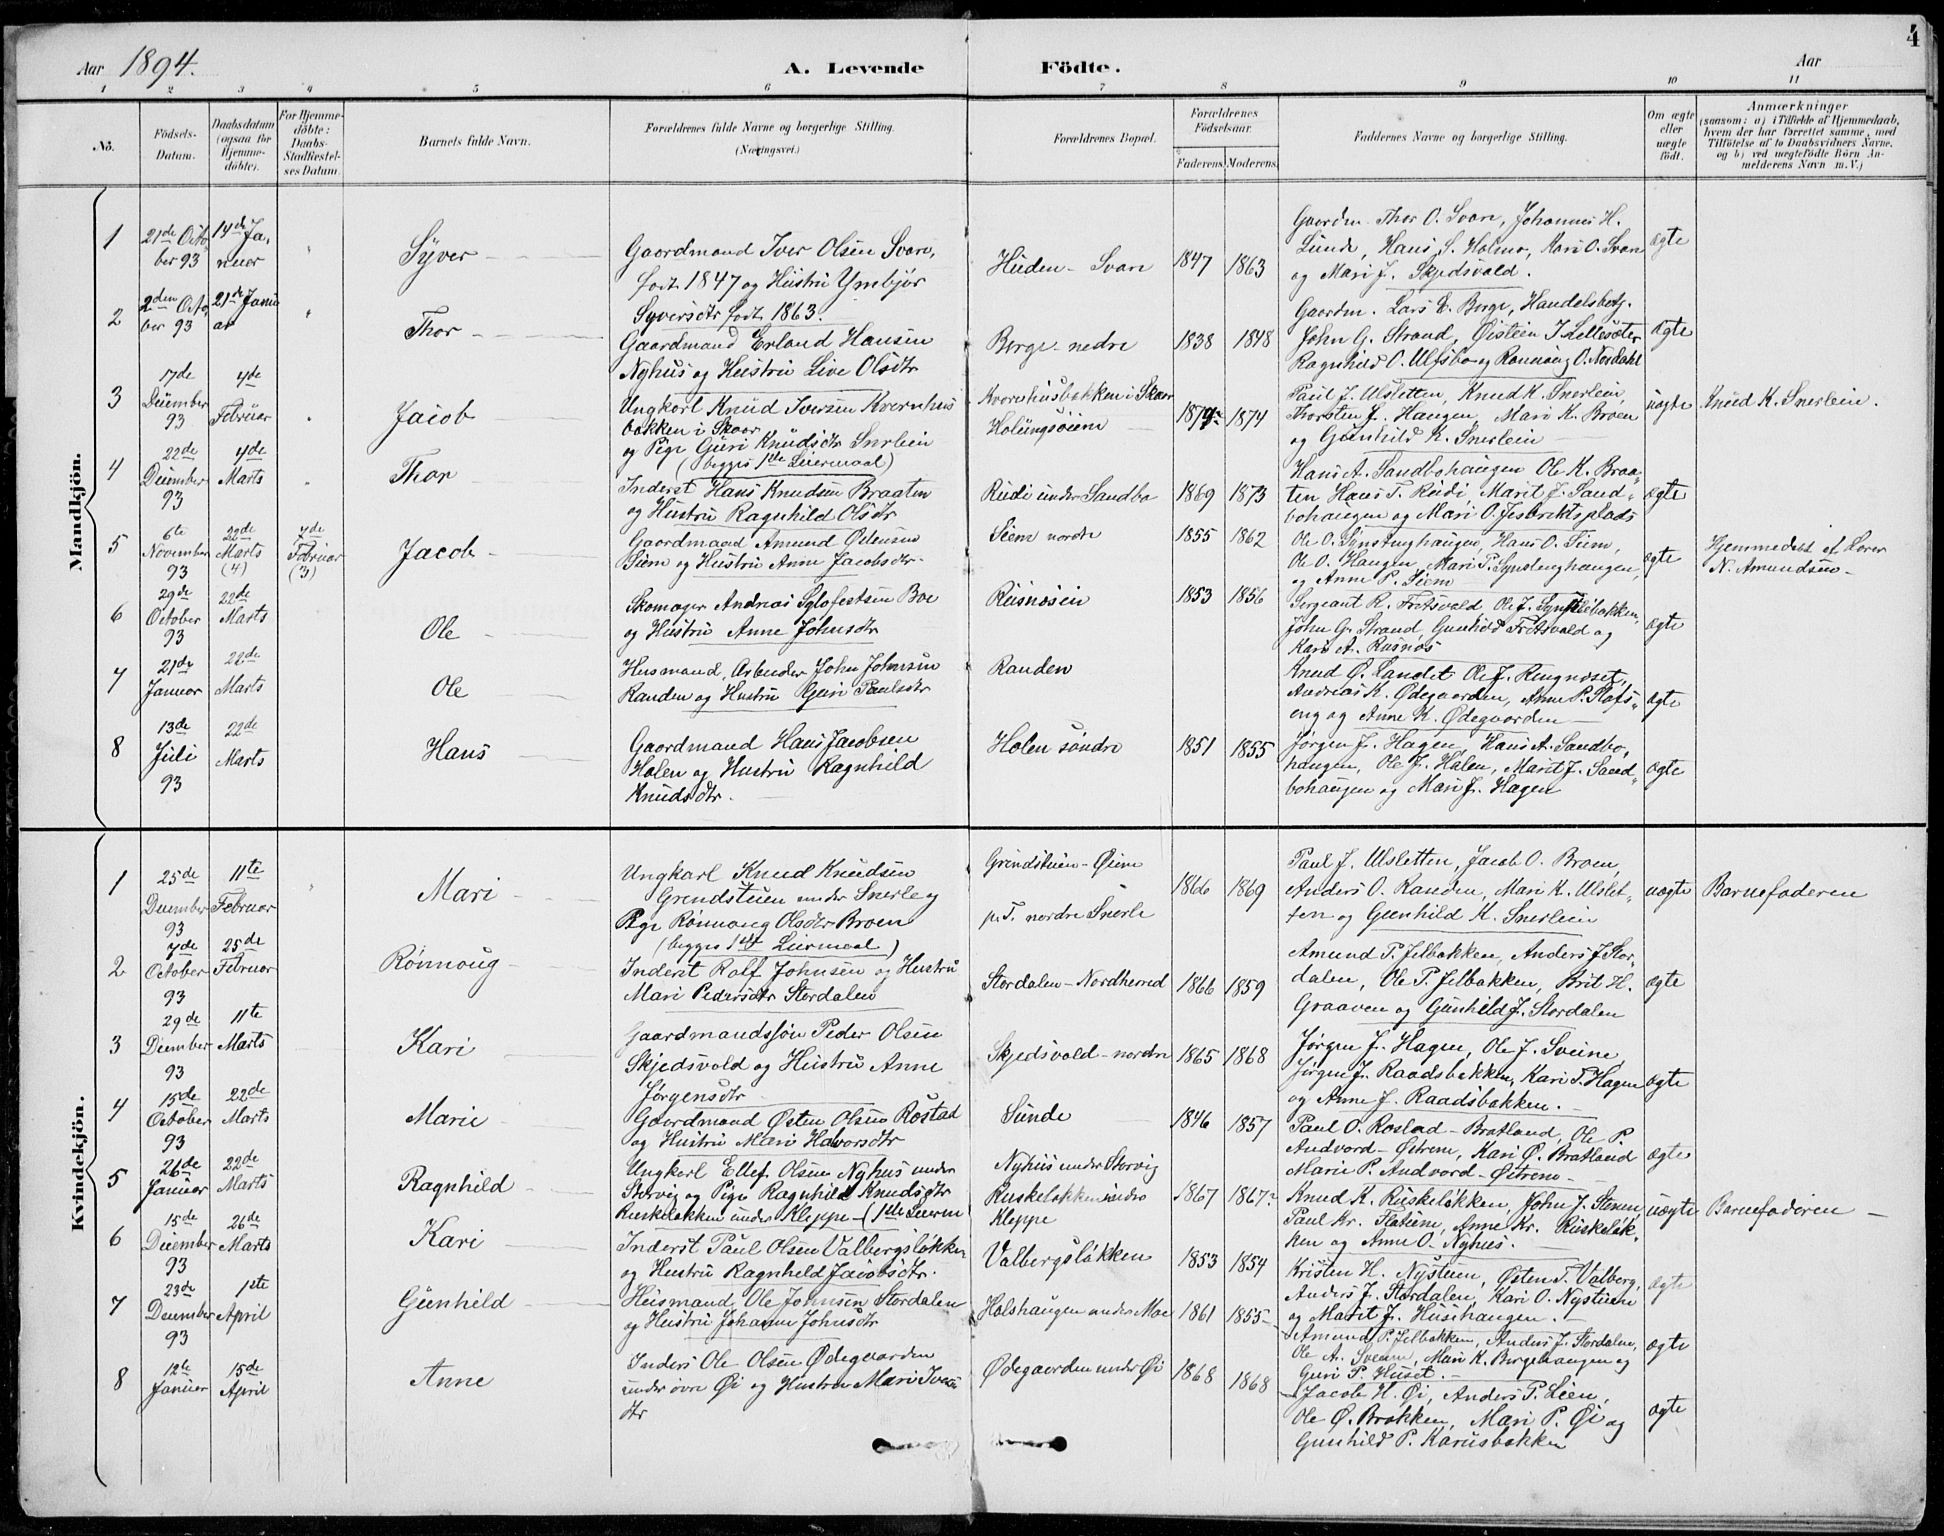 4
Aar 1894.
A. Levende Födte.
Aar
1 2 3 4 5 6 7 8 9 10 11
No.
Födsels-Datum.
Daabsdatum (ogsaa for Hjemmedöbte).
For Hjemmedöbte: Daabs-Stadfæstelses Datum.
Barnets fulde Navn.
Forældrenes fulde Navne og borgerlige Stilling.
(Næringsvei.)
Forældrenes Bopæl.
Forældrenes Födselsaar.
Faderens. Moderens.
Faddernes Navne og borgerlige Stilling.
Om ægte eller uægte födt.
Anmærkninger
(saasom: a) i Tilfælde af Hjemmedaab,
hvem der har forrettet samme, med
Tilföielse af to Daabsvidners Navne,
og b) ved uægtefödte Börn Anmelderens Navn m. V.)
Mandkjön.
1
21de Octo
ber 93
14de Ja,
nuar
Syver
Gaardmand Iver Olsen Svare,
født 1847 og Hustru Ymbjør
Syversdtr født 1863.
Heden - Svare
1847 1863
Gaardm. Thor O. Svare, Johannes H.
Sunde, Hans S. Holmo, Mari O. Svare
og Mari J. Skjedsvold.
ægte
2
2den Octo
ber 93
21de Janu
ar
Thor
Gaardmand Erland Hansen
Nyhus og Hustru Live Olsdtr
Berge nedre
1838 1848
Gaardm. Lars E. Berge, Handelsbetj.
John G. Strand, Øistein J. Lillesæter
Ragnhild O. Ulfsbo og Rønnoug O. Nordahl
ægte
3
17de
December
93
4de
Februar
Jacob
Ungkarl Knud Iversen Kvernhus
bakken i Skaar
og Pige Guri Knudsdtr Snerlein
(begges 1ste Leiermaal)
Kvernhusbakken i Skaar
Holungsøiene
1874
Paul J. Ulsletten, Knud K. Snerlein,
Thorsten J. Haugen, Mari K. Broen
og Gunhild K. Snerlein
uægte
Knud K. Snerlein.
4
22de
December
93
4de
Marts
Thor
Inderst Hans Knudsen Braaten
og Hustru Ragnhild Olsdtr
Rudi under Sandbo
1869 1873
Hans A. Sandbohaugen Ole K. Braa-
ten Hans T. Rudi Marit J. Sand-
bohaugen og Mari O. Jesbriktsplads
ægte
5
6te
November
93
22de
Marts
(4)
7de
Februar
(3)
Jacob
Gaardmand Amund Olsen
Siem og Hustru Anne Jacobsdtr
Siem nordre
1855 1862
Ole O. Synstenghaugen, Hans O. Siem,
Ole O. Haugen, Mari P. Synstenghaugen,
og Anne P. Siem
ægte
Hjemmedøbt af Lærer
N. Amundsen
6
29de
October
93
22de
Marts
Ole
Skomager Andreas Sylfestsen Boe
og Hustru Anne Johnsdtr
Rusnæsien
1853 1856
Sergeant R. Fritsvold, Ole J. Synstebakken,
John G. Strand, Gunhild Fritsvold og
Kari A. Rusnæs
ægte
7
21de
Januar
22de
Marts
Ole
Husmand, Arbeider John Johnsen
Randen og Hustru Guri Paulsdtr
Randen
Knud O. Landet Ole J. Rengnæset,
Andreas K. Ødegaarden, Anne P. Plads-
eng og Anne K. Ødegaarden
ægte
8
13de
Juli
93
22de
Marts
Hans
Gaardmand Hans Jacobsen
Holen og Hustru Ragnhild
Knudsdtr.
Holen søndre
1851 1855
Jørgen J. Hagen, Hans A. Sandbo-
haugen, Ole J. Holen, Marit J. Sand-
bohaugen og Mari J. Hagen
ægte
Kvindekjön.
1
25de
December
93
11te
Februar
Mari
Ungkarl Knud Knudsen
Grindstuen under Snerle og
Pige Rønnoug Olsdtr Broen
(begges 1ste Leiermaal)
Grindstuen - Øiene
p.T. nordre Snerle
1866 1869
Paul J. Ulsletten, Jacob O. Broen,
Anders O. Randen, Mari K. Ulslet-
ten og Gunhild K. Snerlein
uægte
Barnefaderen
2
7de
October
93
25de
Februar
Rønnoug
Inderst Rolf Johnsen og Hustru
Mari Pedersdtr Stordalen
Stordalen - Nordherred
1866 1859
Amund P. Jelbakken, Anders J. Stor-
dalen, Ole P. Jelbakken, Brit H.
Graaven og Gunhild J. Stordalen
ægte
3
29de
December
93
11te
Marts
Kari
Gaardmandssøn Peder Olsen
Skjedsvold og Hustru Anne
Jørgensdtr
Skjedsvold - nordre
1865 1868
Jørgen J. Hagen, Ole J. Sveine,
Jørgen J. Raadsbakken, Kari T. Hagen
og Anne J. Raadsbakken.
ægte
4
15de
October
93
22de
Marts
Marie
Gaardmand Østen Olsen Rostad
og Hustru Mari Halvorsdtr
Sunde
1846 1857
Paul O. Rostad - Bratland, Ole P.
Andvord - Østrem, Kari O. Bratland
Marie P. Andvord - Østrem
ægte
5
26de
Januar
22de
Marts
Ragnhild
Ungkarl Ellef Olsen Nyhus under
Storvig og Pige Ragnhild Knudsdtr
Ruskeløkken under Kleppe (1ste Leierm
Nyhus under Storvig
Ruskeløkken nedre
Kleppe
1867 1867
Knud K. Ruskeløkken, John J. Stenen,
Paul Kr. Flatene, Anne Kr. Ruskeløk-
ken og Anne O. Nyhus.
uægte
Barnefaderen
6
15de
December
93
26de
Marts
Kari
Inderst Paul Olsen Valbergsløkken
og Hustru Ragnhild Jacobsdtr.
Valbergsløkken
1853 1854
Kristen H. Nystuen, Østen T. Valberg,
Anders J. Stordalen, Kari O. Nystuen
og Marit J. Husehaugen.
ægte
7
23de
December
93
1ste
April
Gunhild
Husmand Ole Johnsen Stordalen
og Hustru Johanne Johnsdtr
Holshaugen under Moe
1861 1855
Amund P. Jelbakken, Anders J. Stordalen,
Ole A. Sveen, Mari K. Bergehaugen og
Guri P. Huset.
ægte
8
12te
Januar
15de
April
Anne
Inders Ole Olsen Ødegaarden
under øvre Øi og Hustru Mari Ivers
dtr
Ødegaarden under Øi
1868 1868
Jacob H. Øi, Anders P. Lien,
Ole Ø. Brakken, Mari P. Øi og
Gunhild P. Karusbakken
ægte